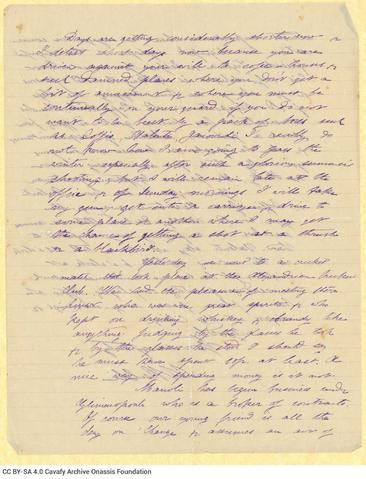 Days are getting considerably shorter now &
I detest short days now because you are
driven against your will to cafés-chantants &
such damned places where you don't get a
bit of amusement & where you must be
continually on your guard if you do not
want to be beset by a pack of boys such
as I really do
not know how I am going to pass the
winter especially after such a glorious summer's
shooting, but I will remain late at the
office & of Sunday mornings I will take
my gun, get into a carriage & drive to
some place or another where I may get
the chance of getting a shot at a thrush
or a blackbird.
Yesterday we went to a cricket
match that took place at the Alexandrian
Club. We had the pleasure of meeting there
who was in great spirits & who
kept on drinking whiskey & brandy like
anything. Judging by the faces he
& by the glasses he I should say
he must have spent at least. A
nice way of spending money is it not.
Manoli has begun business under
who is a broper of contracts.
Of course our young friend is all the
day on 'Change & assumes an air of
CC BY-SA 4.0 Cavafy Archive Onassis Foundation